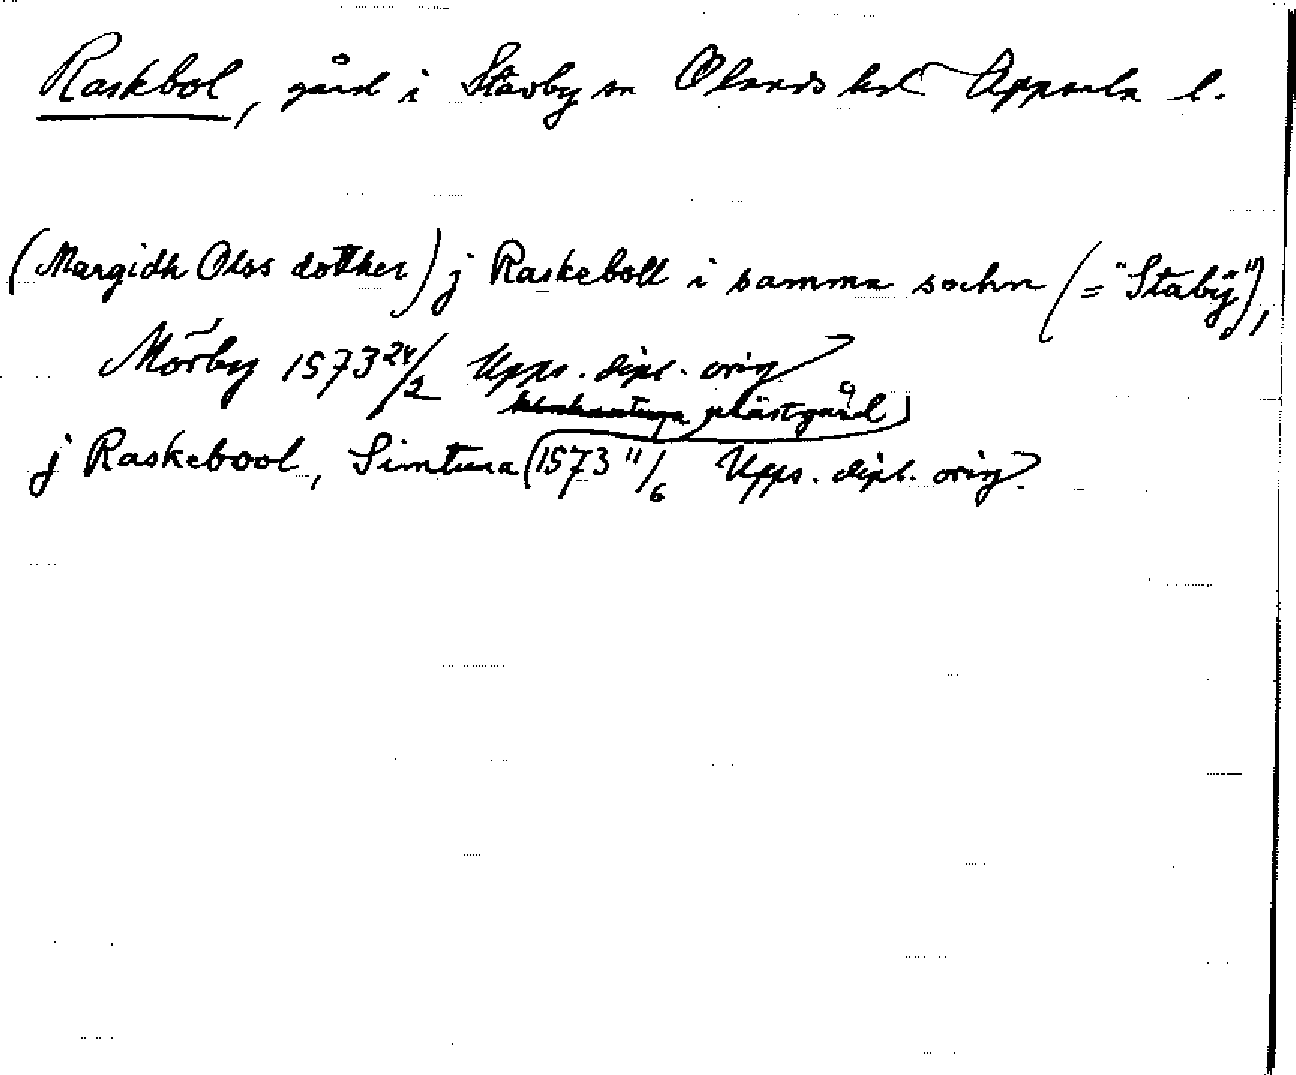 Raskbol, gård i Stavby sn Olands hd Uppsala l.
(Margidh Olss dotther) j Raskeboll i samma sochn (= "Stabÿ"),
Mörby 1573 24/2 Upps. dipl. orig.
prästgård
j Raskebool, Simtuna 1573 11/6 Upps. dipl. orig.